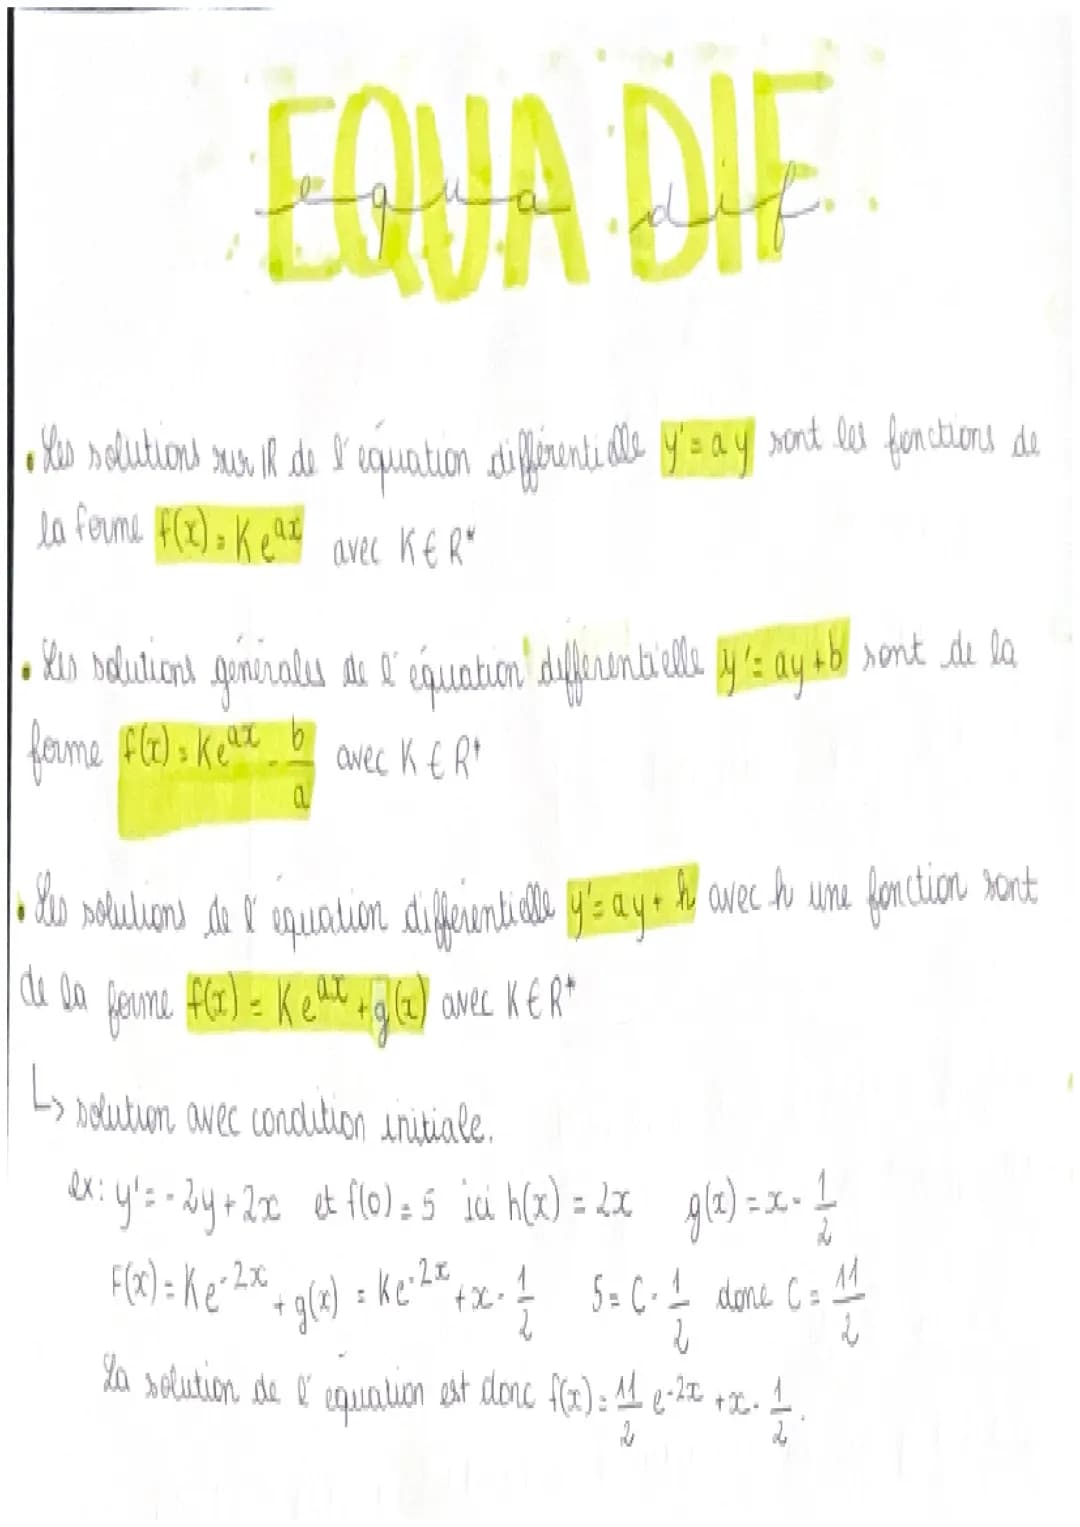 EQUA DIF
equa dif
• Les solutions sur IR de l'équation différentielle y' = ay sont les fonctions de
la forme f(x) = Ke^ax avec K ∈ R*
• Les solutions générales de l'équation différentielle y' = ay + b sont de la
forme f(x) = Ke^ax - b/a avec K ∈ R*
• Les solutions de l'équation différentielle y' = ay + h avec h une fonction sont
de la forme f(x) = Ke^ax + g(x) avec K ∈ R*
↳ solution avec condition initiale.
ex: y' = -2y + 2x et f(0) = 5 ici h(x) = 2x g(x) = x - 1/2
F(x) = Ke^-2x + g(x) = Ke^-2x + x - 1/2 5 = C - 1/2 donc C = 11/2
La solution de l'équation est donc f(x) = 11/2 e^-2x + x - 1/2.